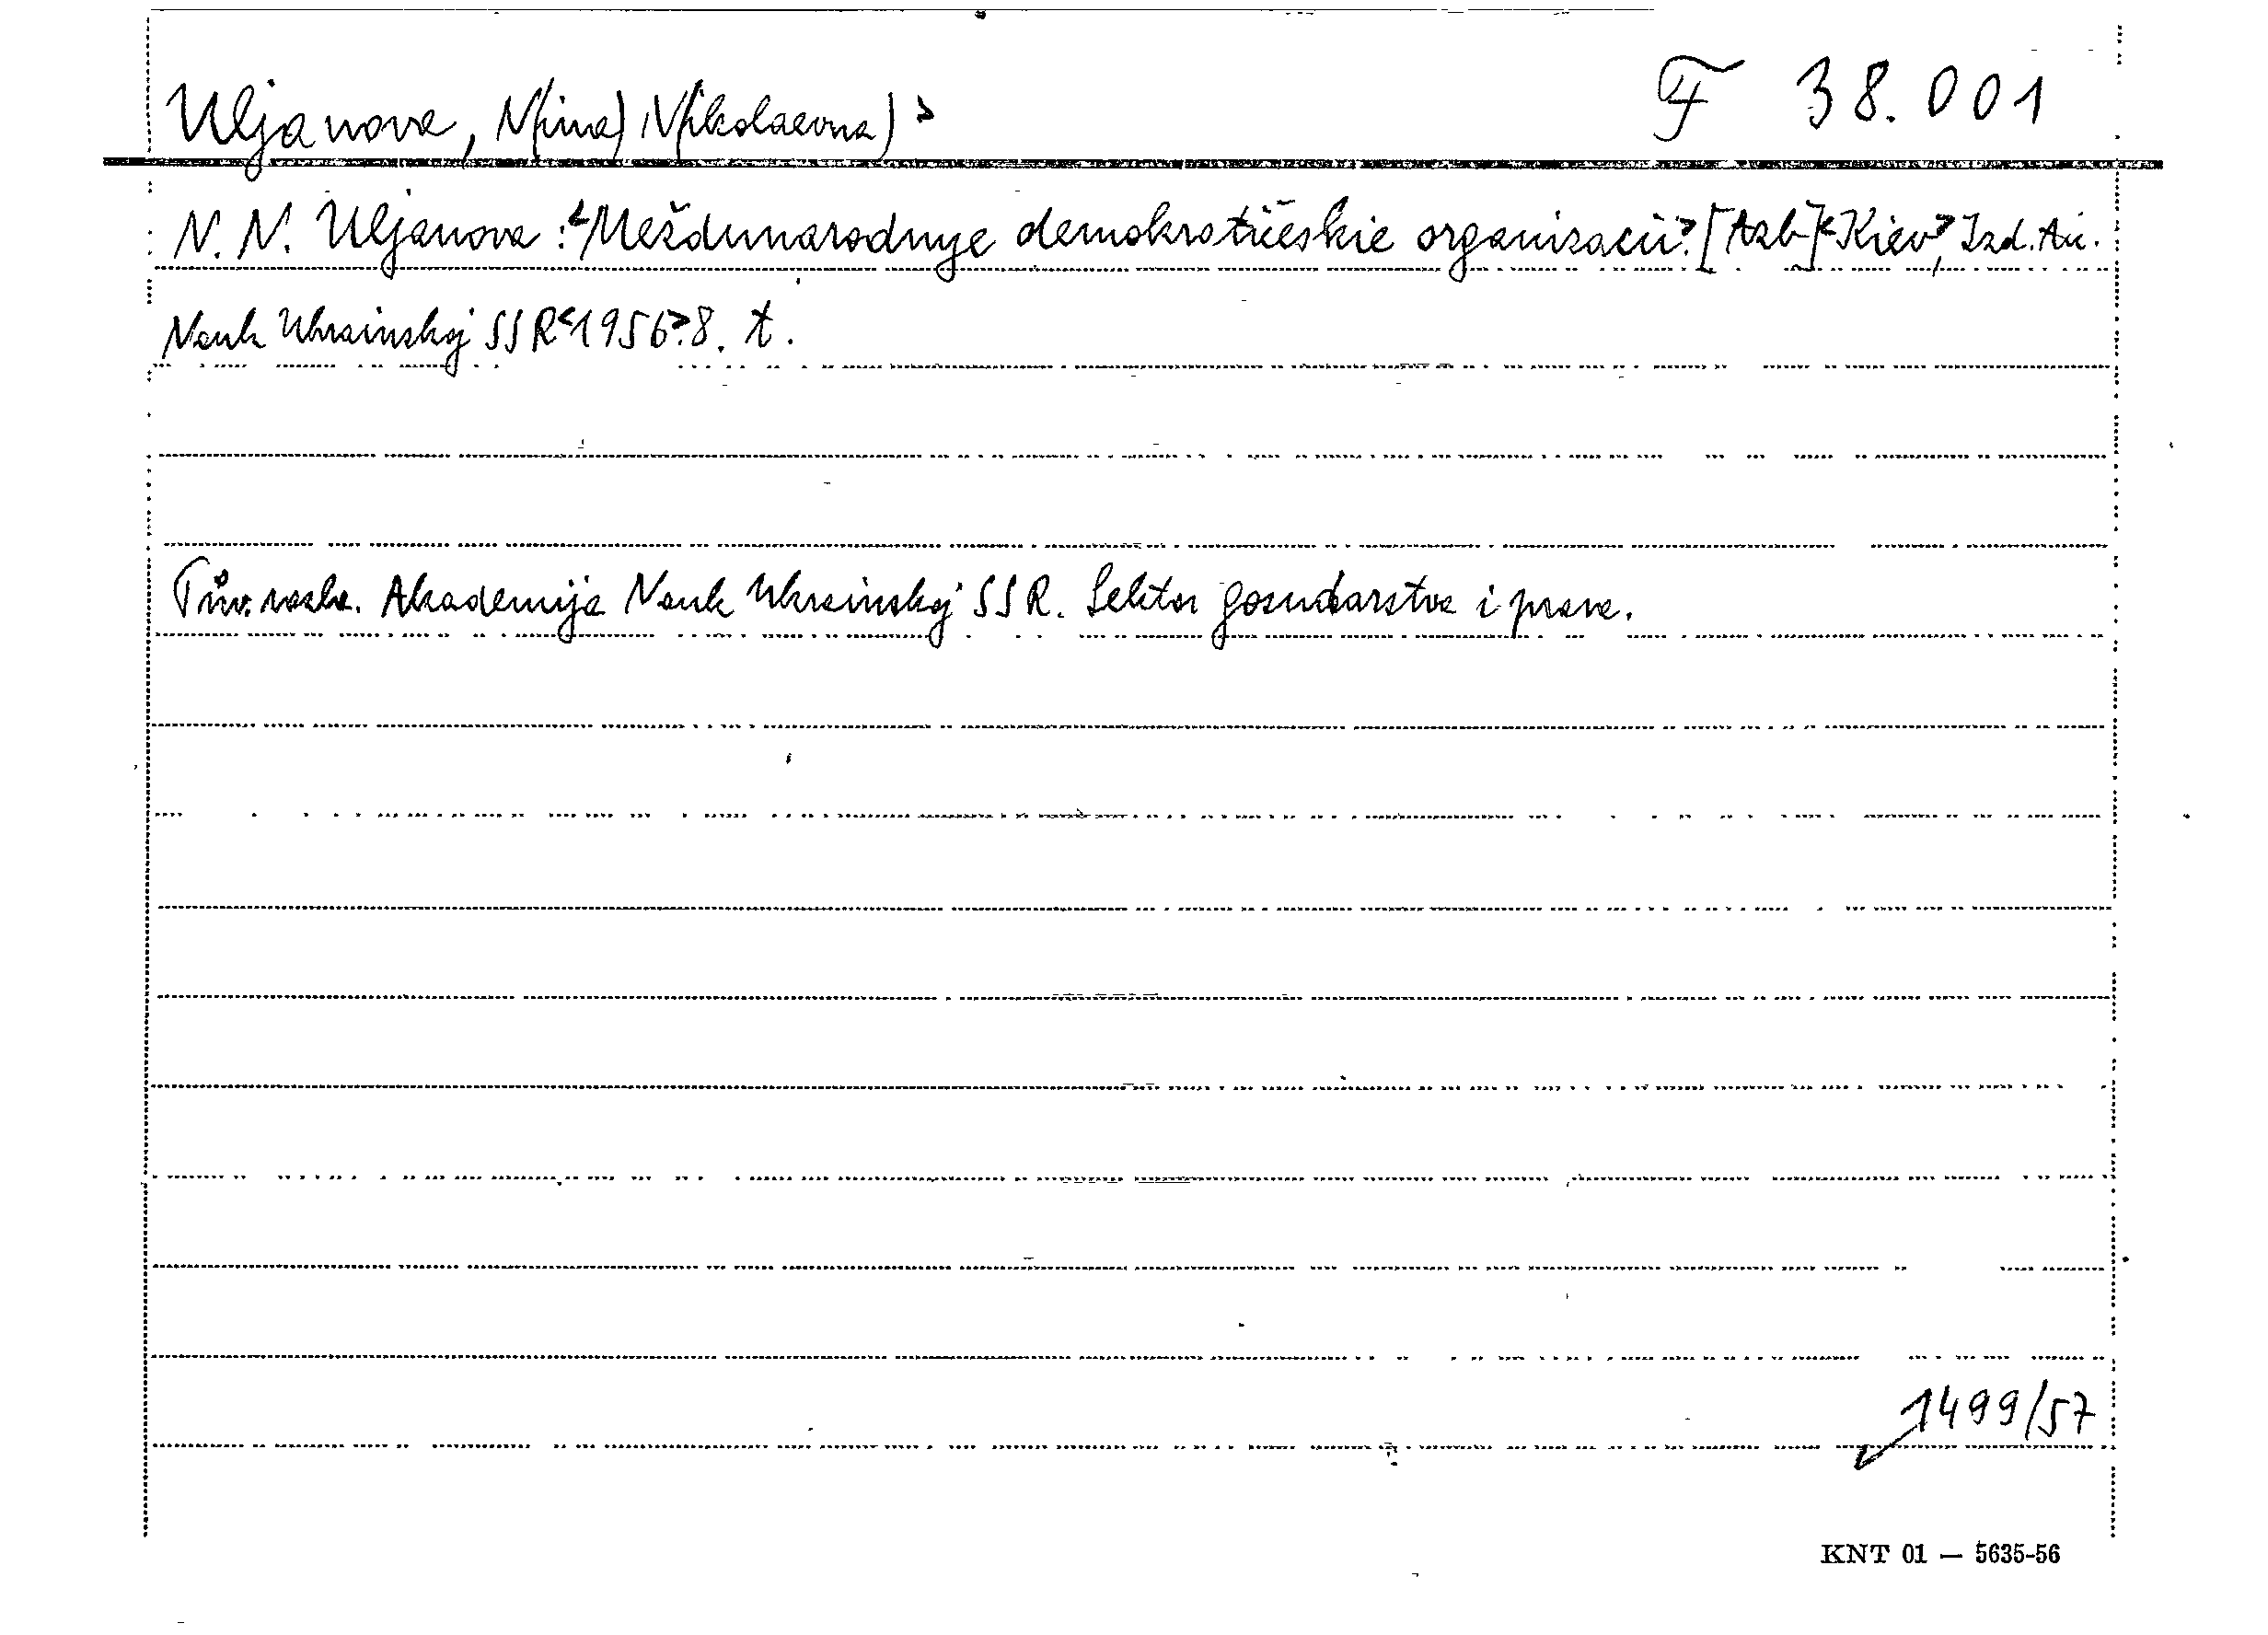 Uljanova, N(ina) N(ikolaevna) > F 38.001
N. N. Uljanova: <Meždunarodnye demokratičeskie organizacii.> [Azb.] <Kiev>, Izd. Ak.
Nauk Ukrainskoj SSR <1956.> 8. t.
Pův. názv. Akademija Nauk Ukrainskoj SSR. Sektor gosudarstva i prava.
1499/57
KNT 01 — 5635-56